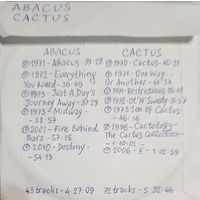 ABACUS
CACTUS
ABACUS
① 1971 - Abacus - 39:28
② 1972 - Everything
You Need - 36:49
③ 1973 - Just A Day's
Journey Away - 37:29
④ 1973 - Midway -
- 38:57
⑤ 2001 - Fire Behind
Bars - 57:15
⑥ 2010 - Destiny -
- 54:13
43 tracks - 4-27-09
CACTUS
① 1970 - Cactus - 40:21
② 1971 - One Way...
Or Another - 41:34
③ 1971 - Restrictions
④ 1972 - Ot'N'Sweaty
⑤ 1973 Son Of Cactus
- 46:16
⑥ 1996 - Cactology
The Cactus Collection -
- 1:10:01
⑦ 2006 - V - 1:02:59
72 tracks - 5-32-46